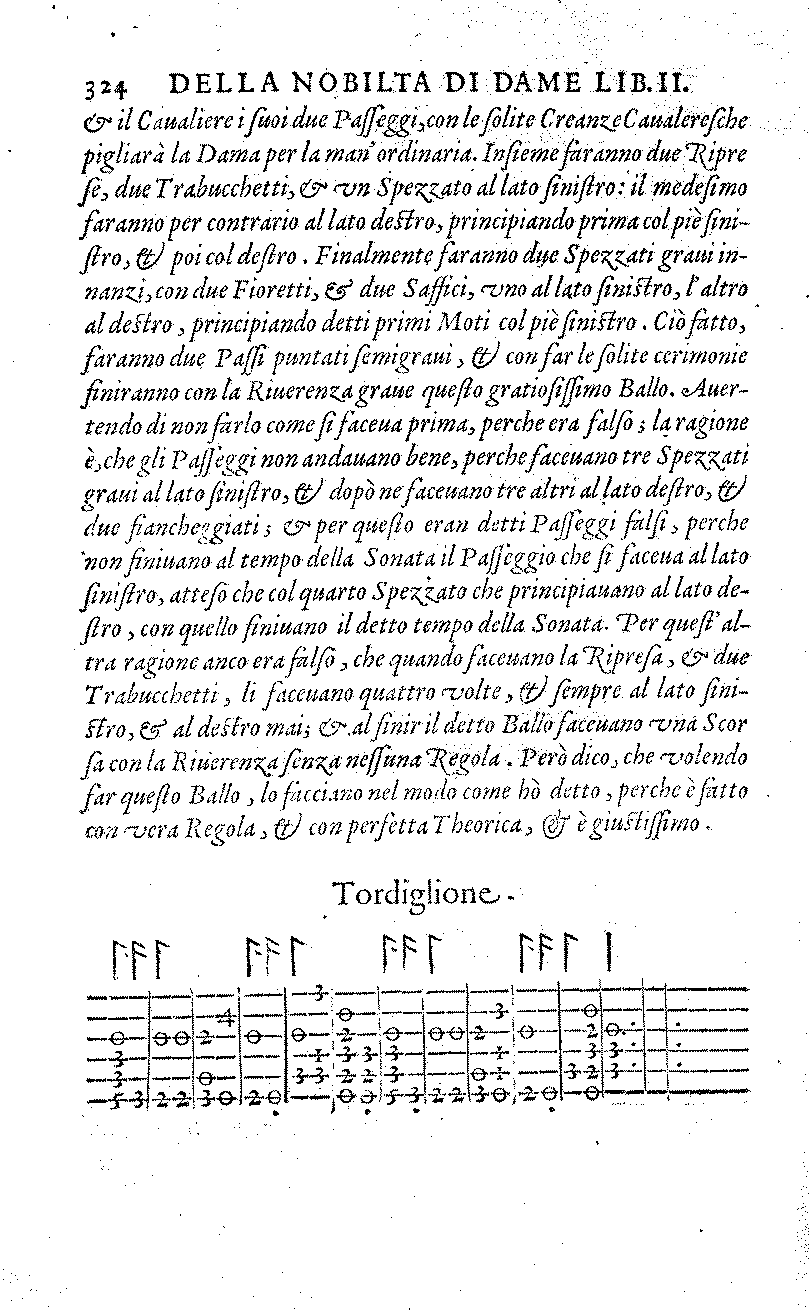 324 DELLA NOBILTA DI DAME LIB.II.
& il Caualiere i ſuoi due Paſſeggi, con le ſolite Creanze Caualereſche
pigliarà la Dama per la man' ordinaria. Inſieme faranno due Ripre
ſe, due Trabucchetti, & vn Spezzato al lato ſiniſtro: il medeſimo
faranno per contrario al lato deſtro, principiando prima col piè ſini-
ſtro, & poi col deſtro. Finalmente faranno due Spezzati graui in-
nanzi, con due Fioretti, & due Saffici, vno al lato ſiniſtro, l'altro
al deſtro, principiando detti primi Moti col piè ſiniſtro. Ciò fatto,
faranno due Paſſi puntati ſemigraui, & con far le ſolite cerimonie
finiranno con la Riuerenza graue queſto gratioſiſſimo Ballo. Auer-
tendo di non farlo come ſi faceua prima, perche era falſo; la ragione
è, che gli Paſſeggi non andauano bene, perche faceuano tre Spezzati
graui al lato ſiniſtro, & dopò ne faceuano tre altri al lato deſtro, &
due fiancheggiati; & per queſto eran detti Paſſeggi falſi, perche
non finiuano al tempo della Sonata il Paſſeggio che ſi faceua al lato
ſiniſtro, atteſo che col quarto Spezzato che principiauano al lato de-
ſtro, con quello finiuano il detto tempo della Sonata. Per queſt' al-
tra ragione anco era falſo, che quando faceuano la Ripreſa, & due
Trabucchetti, li faceuano quattro volte, & ſempre al lato ſini-
ſtro, & al deſtro mai; & al finir il detto Ballo faceuano vna Scor
ſa con la Riuerenza ſenza neſſuna Regola. Però dico, che volendo
far queſto Ballo, lo facciano nel modo come hò detto, perche è fatto
con vera Regola, & con perfetta Theorica, & è giuſtiſſimo.
Tordiglione.
3
4 0 3 0
0 0 0 2 0 0 2 0 0 0 2 0 2 0
3 1 3 3 3 1 3 3
3 0 3 3 2 2 3 0 1 3 2 3
5 3 2 2 3 0 2 0 0 0 5 3 2 2 3 0 2 0 0